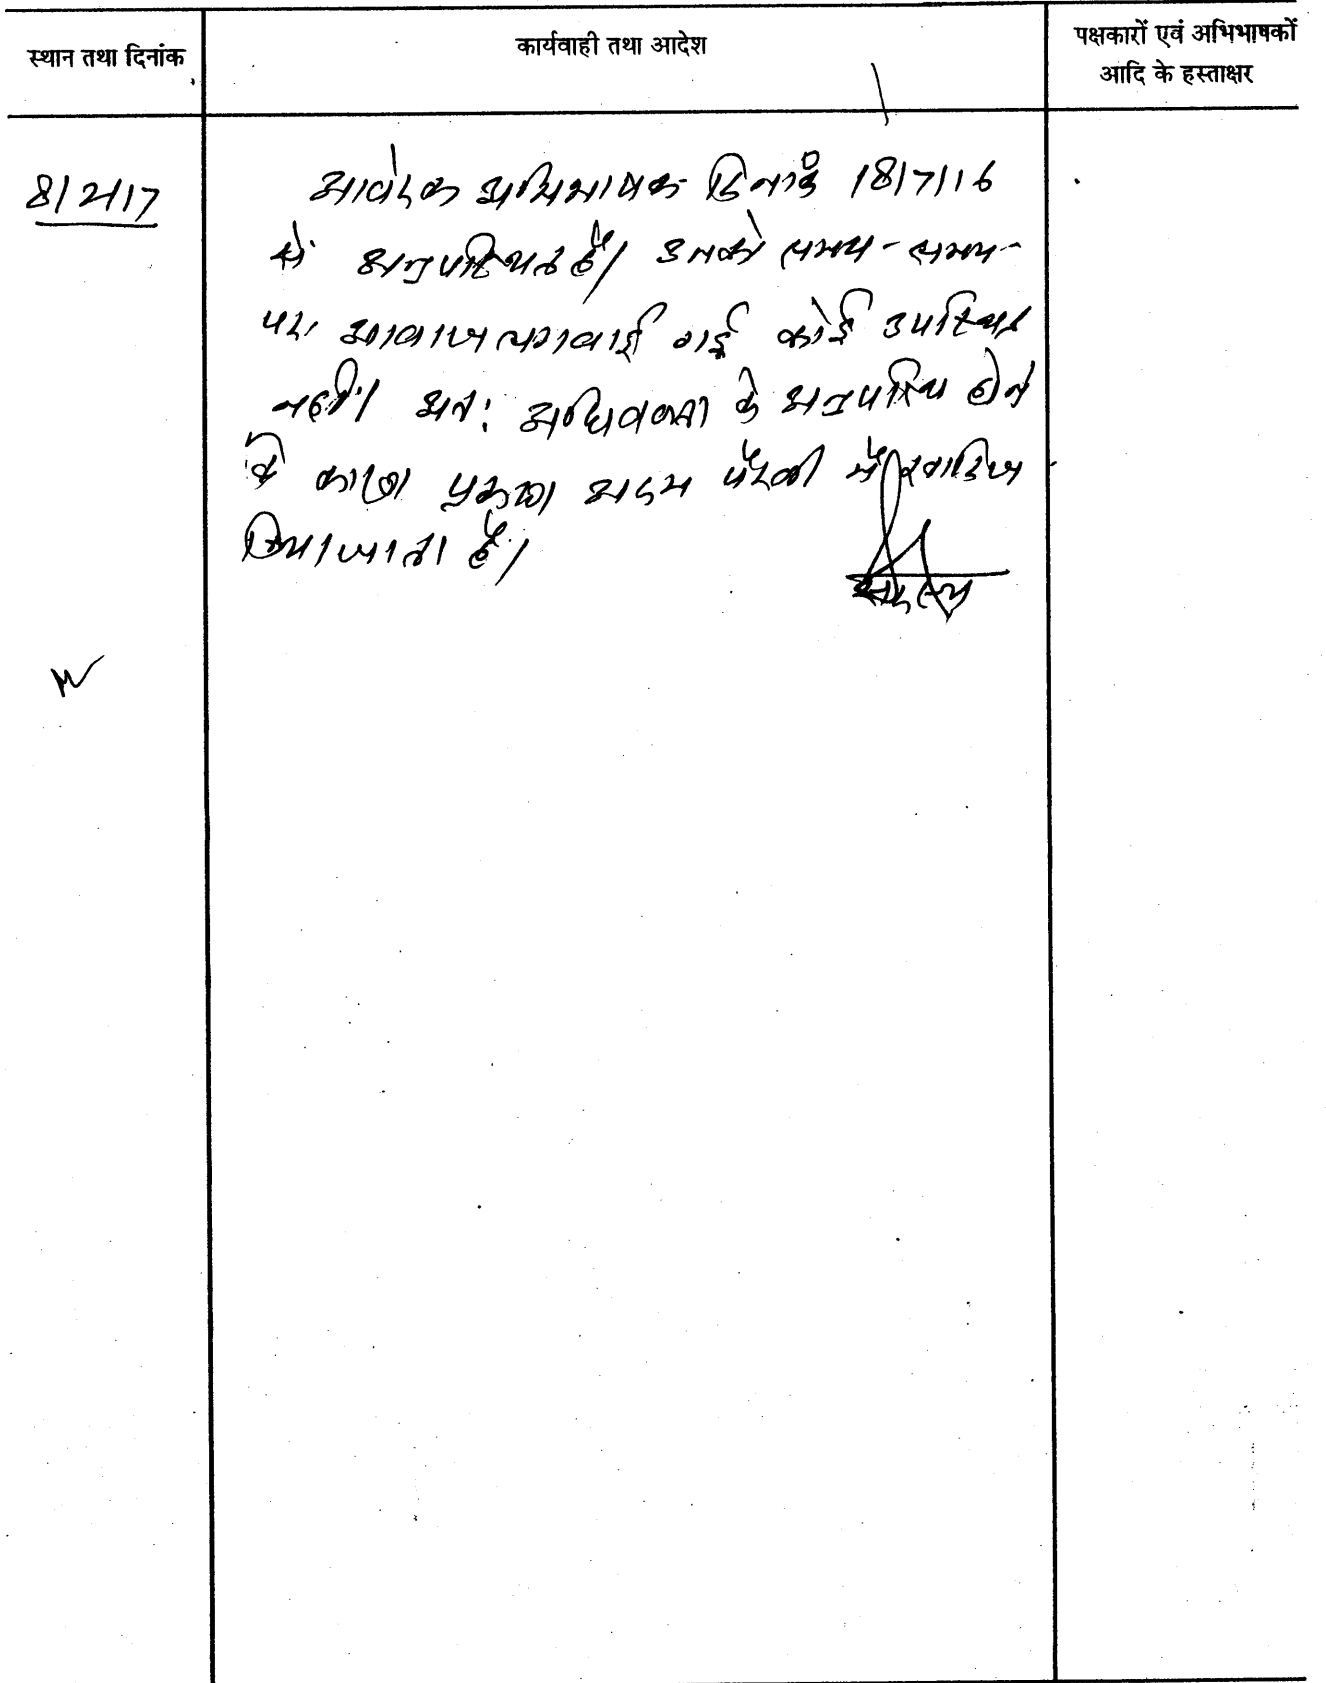 स्थान तथा दिनांक
कार्यवाही तथा आदेश
पक्षकारों एवं अभिभाषकों
आदि के हस्ताक्षर
8/2/17
आवेदक अभिभाषक दिनांक 18/7/16
से अनुपस्थित है। उनको समय-समय-
पर आवाज लगवाई गई कोई उपस्थित
नहीं। अतः अधिवक्ता के अनुपस्थि होने
के कारण प्रकरण अदम पैरवी में खारिज
किया जाता है।
सदस्य